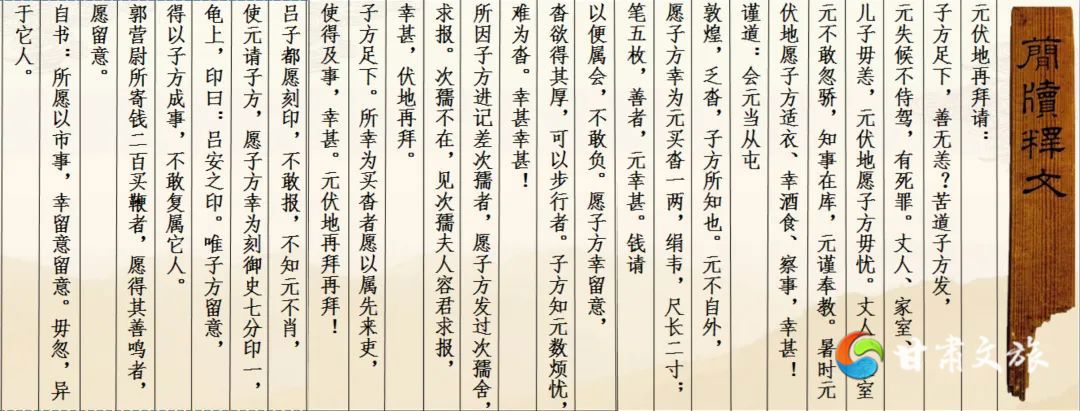 簡牘釋文
元伏地再拜请：
子方足下，善无恙？苦道子方发，
元失候不侍驾，有死罪。丈人、家室、
儿子毋恙，元伏地愿子方毋忧。丈人、室
元不敢忽骄，知事在库，元谨奉教。暑时元
伏地愿子方适衣、幸酒食、察事，幸甚！
谨道：会元当从屯
敦煌，乏沓，子方所知也。元不自外，
愿子方幸为元买沓一两，绢韦，尺长二寸；
笔五枚，善者，元幸甚。钱请
以便属会，不敢负。愿子方幸留意，
沓欲得其厚，可以步行者。子方知元数烦忧，
难为沓。幸甚幸甚！
所因子方进记差次孺者，愿子方发过次孺舍，
求报。次孺不在，见次孺夫人容君求报，
幸甚，伏地再拜。
子方足下。所幸为买沓者愿以属先来吏，
使得及事，幸甚。元伏地再拜再拜！
吕子都愿刻印，不敢报，不知元不肖，
使元请子方，愿子方幸为刻御史七分印一，
龟上，印曰：吕安之印。唯子方留意，
得以子方成事，不敢复属它人。
郭营尉所寄钱二百买鞭者，愿得其善鸣者，
愿留意。
自书：所愿以市事，幸留意留意。毋忽，异
于它人。
甘肃文旅